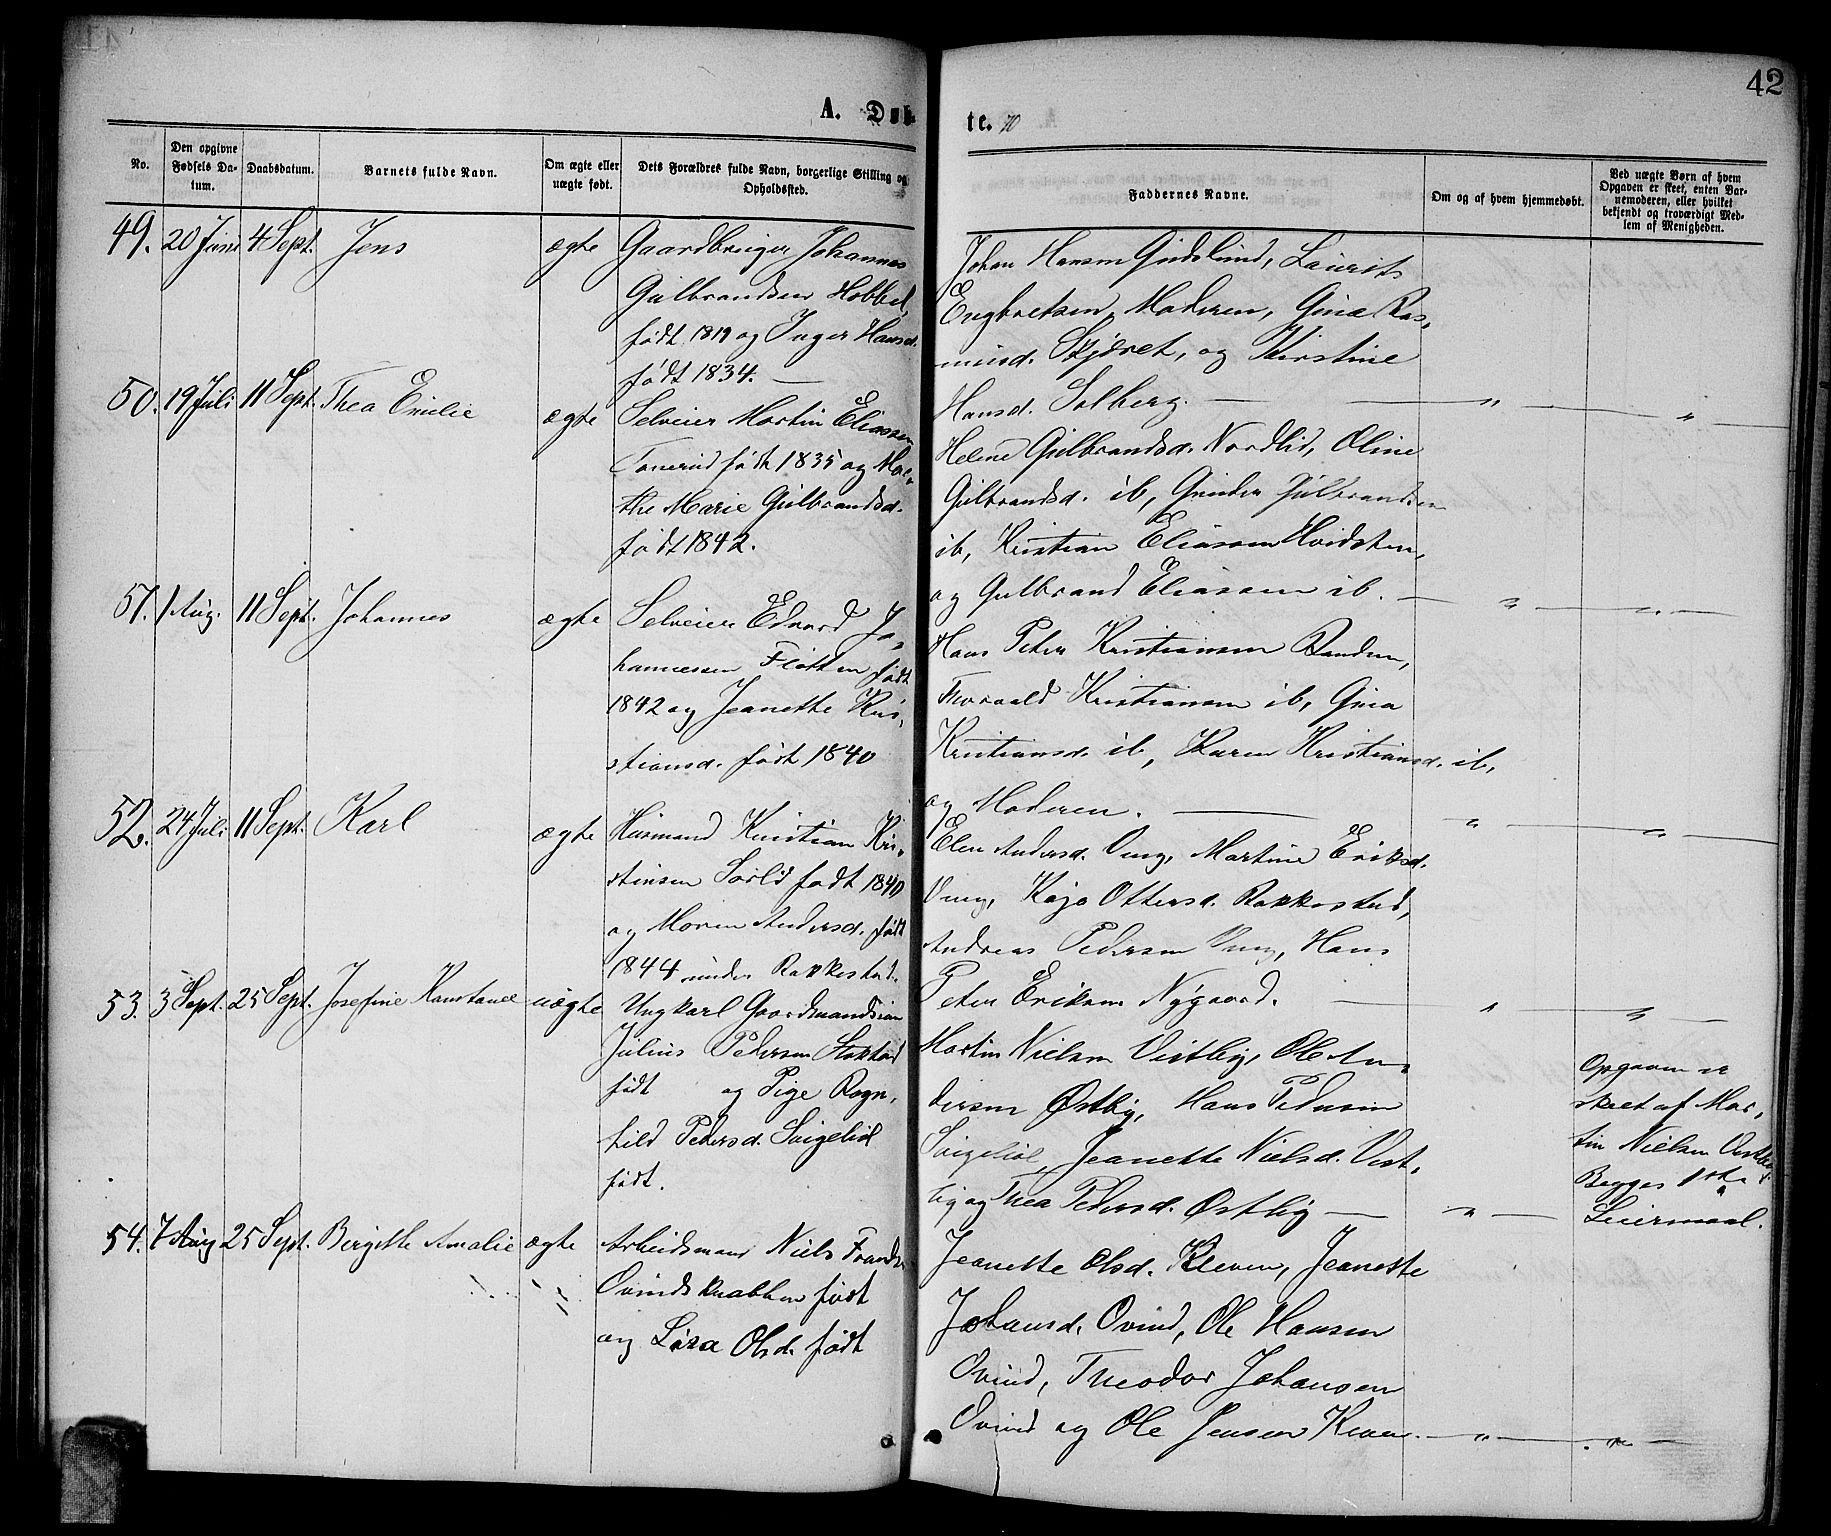 42
A. Døb-
te. 70
No.
Den opgivne Fødsels Datum.
Daabsdatum.
Barnets fulde Navn.
Om ægte eller uægte født.
Dets Forældres fulde Navn, borgerlige Stilling og Opholdssted.
Faddernes Navne.
Om og af hvem hjemmedøbt.
Ved uægte Børn af hvem Opgaven er skeet, enten Barnemoderen, eller hvilket bekjendt og troværdigt Medlem af Menigheden.
49. 20 Juni 4 Sept. Jens ægte
Gaardbruger Johannes
Gulbrandsen Hobbel,
født 1819 og Inger Hansd.
født 1834. —
Johan Hansen Gudslund, Laurits
Engbretsen, Moderen, Gina Ras-
musd. Skjøret, og Kirstine
Hansd. Solberg. — " — "
50. 19 Juli 11 Sept. Thea Emilie ægte
Selveier Martin Eliassen
Tonerud født 1835 og Mar-
the Marie Gulbrandsd.
født 1842.
Helene Gulbrandsd. Nordlid, Oline
Gulbrandsd. ib, Gunder Gulbrandsen
ib, Kristian Eliassen Hvidsten,
og Gulbrand Eliassen ib. — " — " —
51. 1 Aug. 11 Sept. Johannes ægte
Selveier Edvard Jo-
hannessen Fløtten født
1842 og Jeanette Kri-
stiansd. født 1840
Hans Peter Kristiansen Randen,
Thorvald Kristiansen ib, Gina
Kristiansd. ib, Karen Kristiansd. ib,
og Moderen. — " — " —
52. 24 Juli 11 Sept. Karl ægte
Husmand Kristian Kri-
stensen Sorlid født 1840
og Maren Andersd. født
1844 under Rakkestad.
Elen Andersd. Ving, Martine Eriksd.
Ving, Kaja Ottersd. Rakkestad,
Andreas Pedersen Ving, Hans
Peter Eriksen Nygaard. — " — " —
53. 3 Sept. 25 Sept. Josefine Konstance uægte
Ungkarl Gaardmandssøn
Julius Pedersen
født og Pige Ragn-
hild Pedersd.
født.
Martin Nielsen Vestby, Ole An-
dersen Østby, Hans Pedersen
Jeanette Nielsd. Vest-
by og Thea Pedersd. Østby — " —
Opgaven er
skeet af Mar-
tin Nielsen Vestby
Begges 1ste
Leiermaal.
54. 7 Aug 25 Sept. Bergitte Amalie ægte
Arbeidsmand Niels Frands.
Ovindsknabben født
og Lisa Olsd. født
Jeanette Olsd. Kleven, Jeanette
Johansd. Ovind, Ole Hansen
Ovind, Theodor Johansen
Ovind og Ole Jensen — " — " —